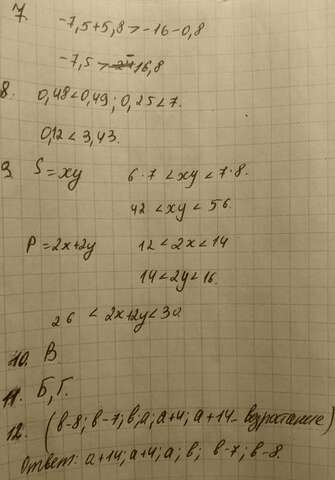 7. -7,5+5,8>-16-0,8
-7,5 > -16,8
8. 0,48<0,49; 0,25<7.
0,12 < 3,43.
9. S = xy 6·7 < xy < 7·8.
42 < xy < 56.
P = 2x+2y 12 < 2x < 14
14 < 2y < 16.
26 < 2x+2y < 30
10. В
11. Б, Г.
12. (в-8; в-7; в, а; а+4; а+14 - возростание)
Ответ: а+14; а+4; а; в; в-7; в-8